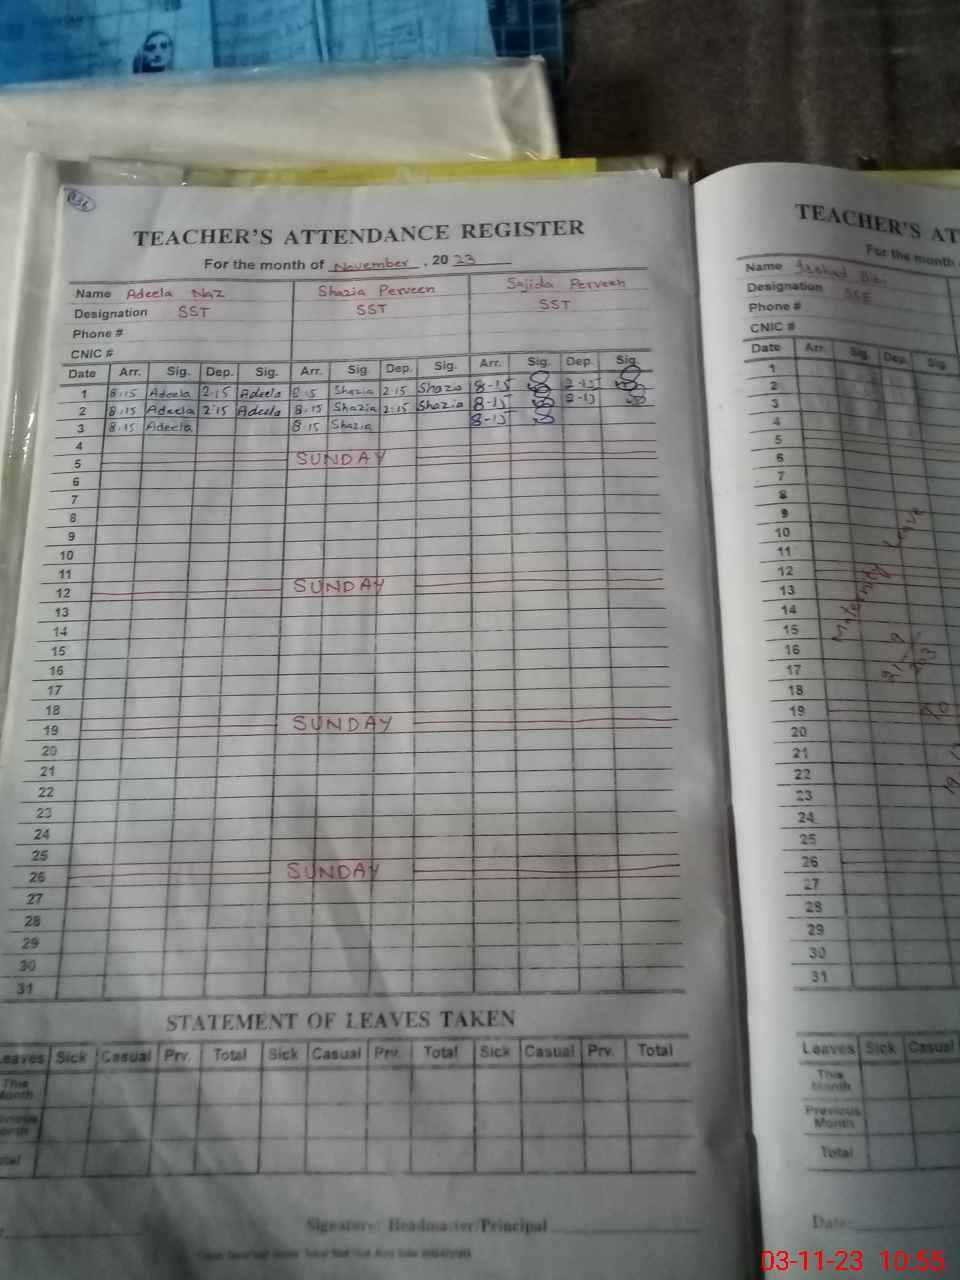 TEACHER'S ATTENDANCE REGISTER
For the month of November, 2023
Name Adeela Naz Shazia Perveen Sajida Perveen
Designation SST SST SST
Phone #
CNIC #
Date Arr. Sig. Dep. Sig. Arr. Sig. Dep. Sig. Arr. Sig. Dep. Sig.
1 8:15 Adeela 2:15 Adeela 8:15 Shazia 2:15 Shazia 8-15 2-15
2 8:15 Adeela 2:15 Adeela 8:15 Shazia 2:15 Shazia 8-15
3 8:15 Adeela 8:15 Shazia 8-15
4
5 SUNDAY
6
7
8
9
10
11
12 SUNDAY
13
14
15
16
17
18
19 SUNDAY
20
21
22
23
24
25
26 SUNDAY
27
28
29
30
31
STATEMENT OF LEAVES TAKEN
Leaves Sick Casual Prv. Total Sick Casual Prv. Total Sick Casual Prv. Total
This Month
Previous Month
Total
Signature: Headmaster/Principal
TEACHER'S AT
For the month
Name
Designation SSE
Phone #
CNIC #
Date Arr. Sig. Dep. Sig.
1
2
3
4
5
6
7
8
9
10
11
12
13
14
15
16
17
18
19
20
21
22
23
24
25
26
27
28
29
30
31
Maternity Leave
Leaves Sick Casual
This Month
Previous Month
Total
Date:
03-11-23 10:55